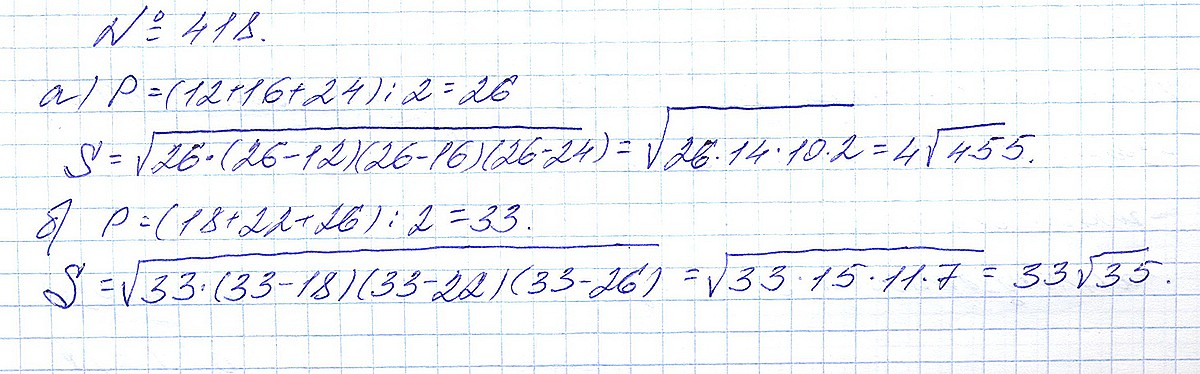 № 418.
а) P=(12+16+24):2=26
S=√26·(26-12)(26-16)(26-24)=√26·14·10·2=4√455.
б) P=(18+22+26):2=33.
S=√33·(33-18)(33-22)(33-26)=√33·15·11·7=33√35.